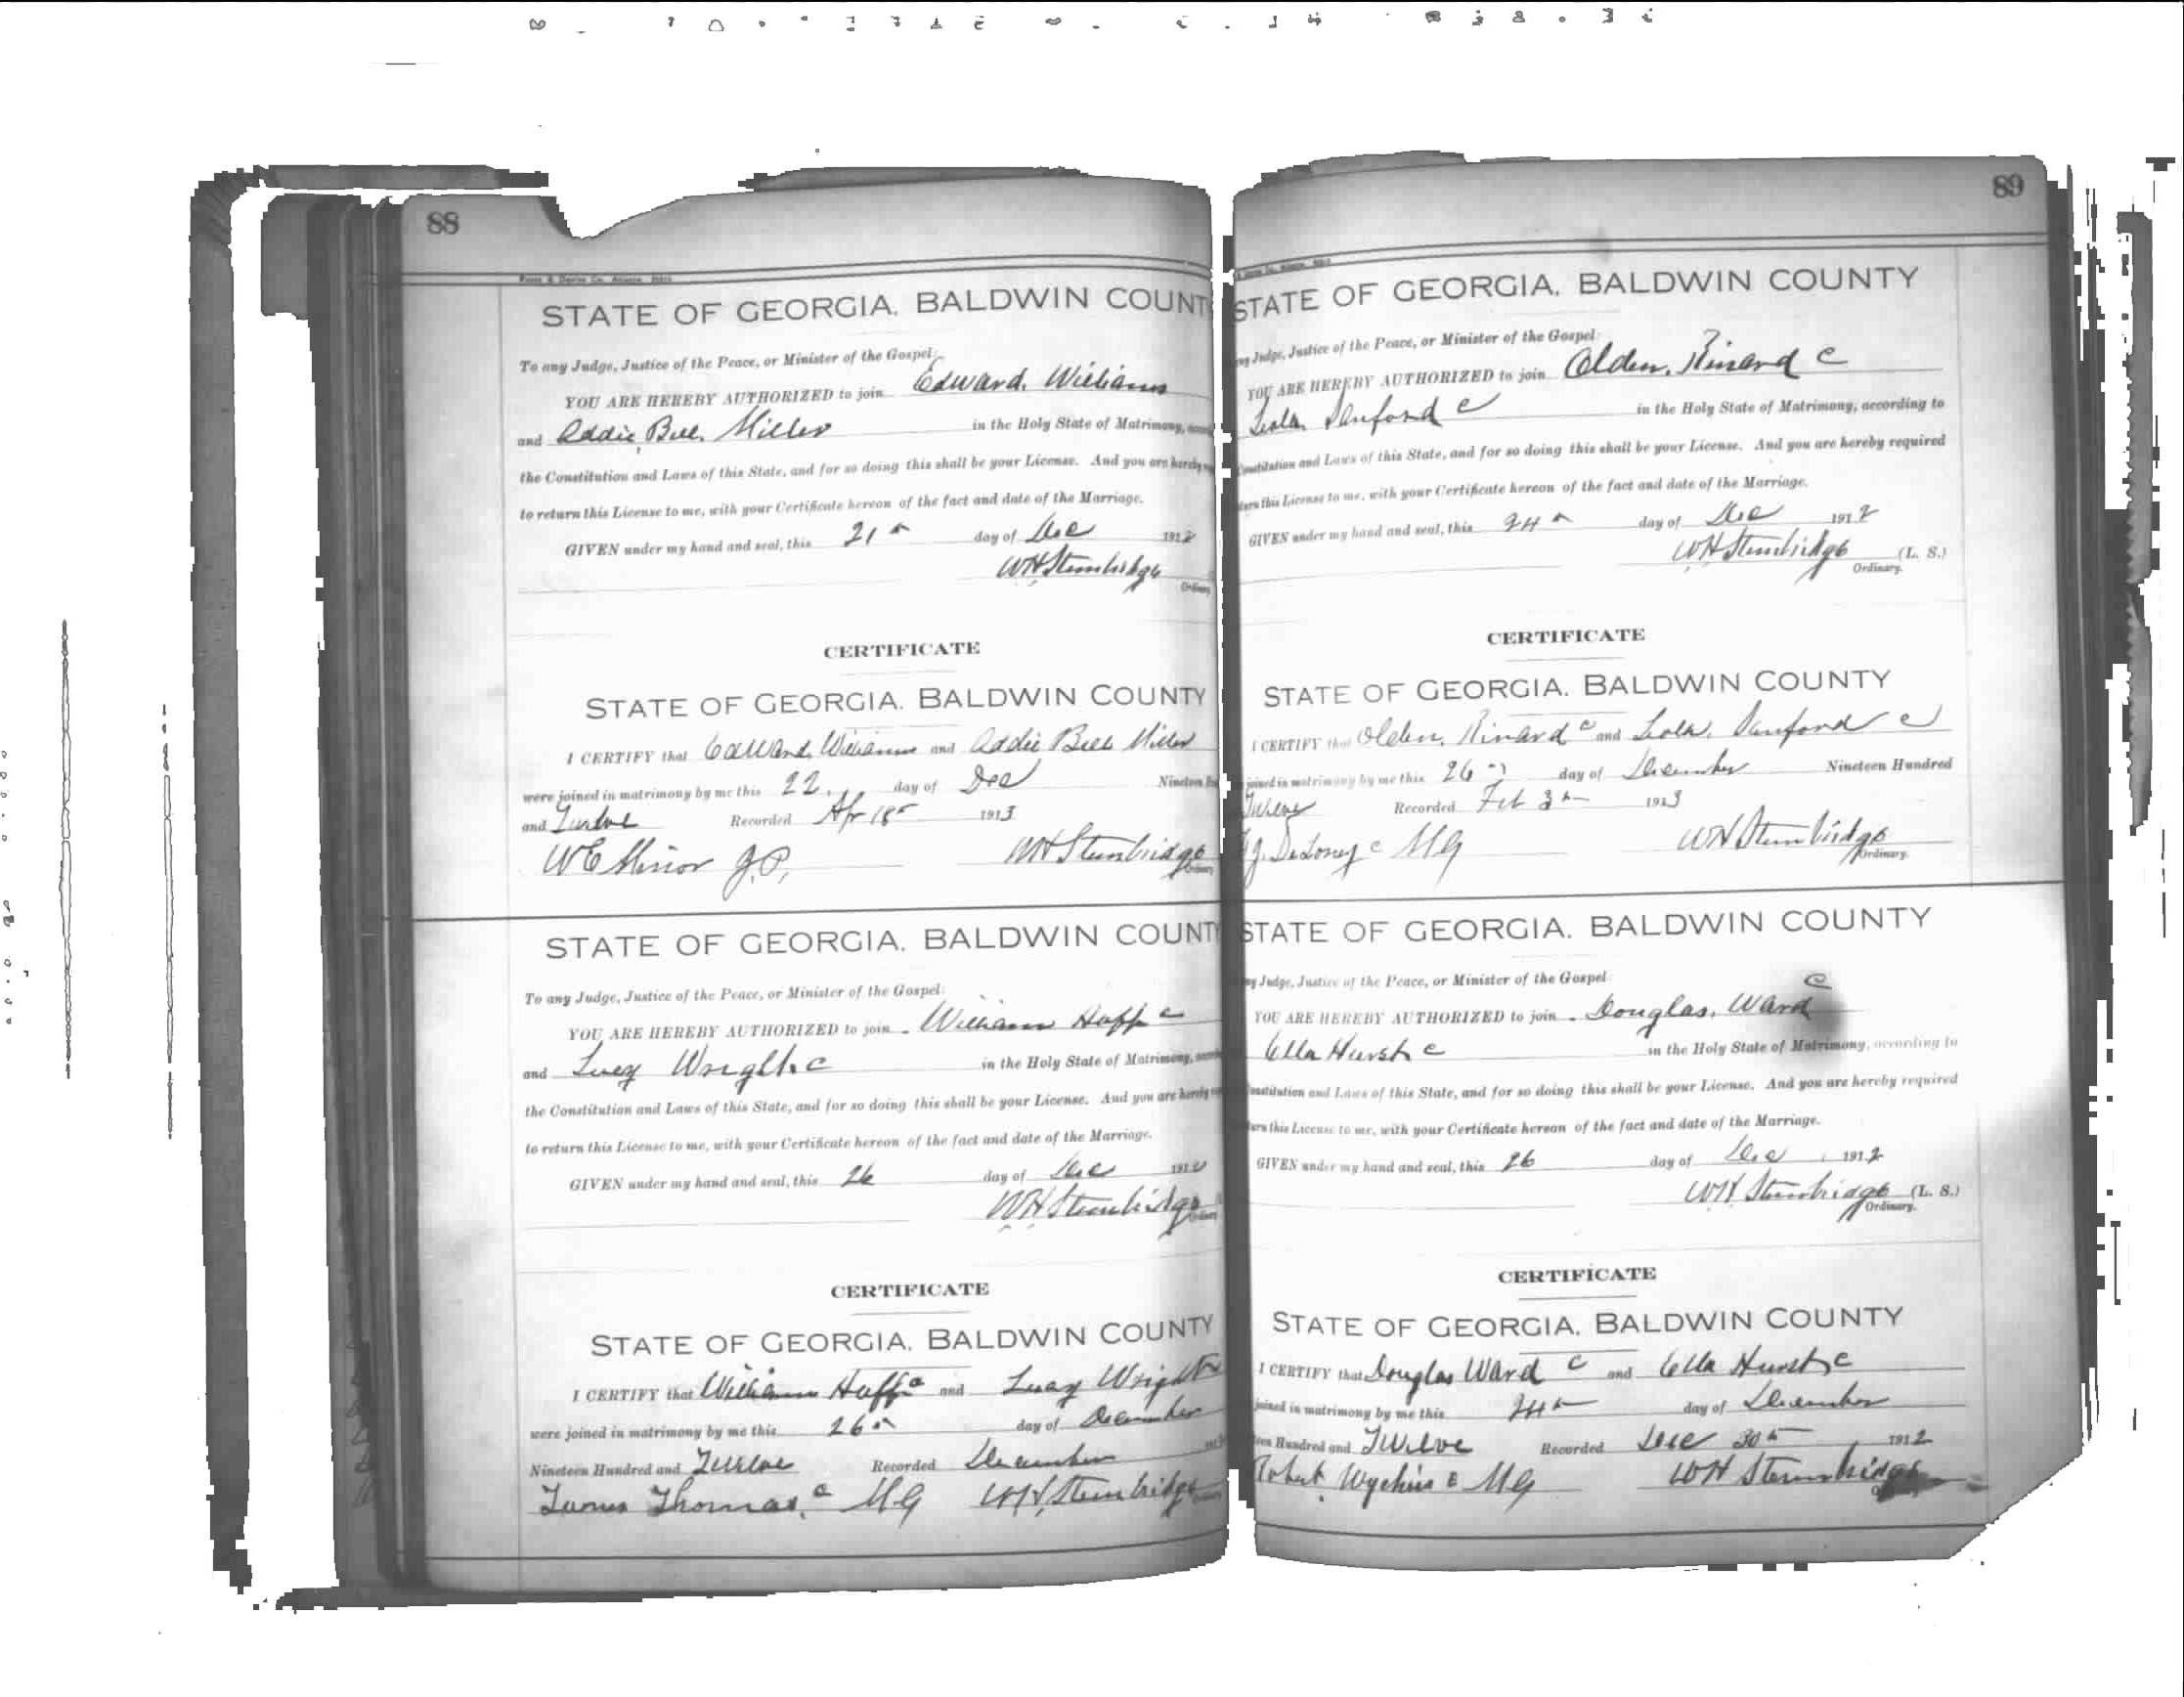 88
STATE OF GEORGIA. BALDWIN COUNT
To any Judge, Justice of the Peace, or Minister of the Gospel:
YOU ARE HEREBY AUTHORIZED to join Edward. Williams
and Addie Bell. Miller in the Holy State of Matrimony,
the Constitution and Laws of this State, and for so doing this shall be your License. And you are hereby
to return this License to me, with your Certificate hereon of the fact and date of the Marriage.
GIVEN under my hand and seal, this 21 day of Dec 1912
WH Stembridge
Ordinary
CERTIFICATE
STATE OF GEORGIA. BALDWIN COUNTY
I CERTIFY that Edward. Williams and Addie Bell Miller
were joined in matrimony by me this 22. day of Dec Nineteen
and Twelve Recorded Apr 18 1913
WE Minor J.P. WH Stembridge
Ordinary
STATE OF GEORGIA. BALDWIN COUNTY
To any Judge, Justice of the Peace, or Minister of the Gospel:
YOU ARE HEREBY AUTHORIZED to join William Huff c
and Lucy Wright. c in the Holy State of Matrimony,
the Constitution and Laws of this State, and for so doing this shall be your License. And you are hereby
to return this License to me, with your Certificate hereon of the fact and date of the Marriage.
GIVEN under my hand and seal, this 26 day of Dec 1912
WH Stembridge
Ordinary
CERTIFICATE
STATE OF GEORGIA. BALDWIN COUNTY
I CERTIFY that William Huff c and Lucy Wright
were joined in matrimony by me this 26 day of December
Nineteen Hundred and Twelve Recorded December
James Thomas. c MG WH Stembridge
Ordinary
89
STATE OF GEORGIA. BALDWIN COUNTY
Judge, Justice of the Peace, or Minister of the Gospel:
YOU ARE HEREBY AUTHORIZED to join Olden. Rinard c
Leola. Sanford c in the Holy State of Matrimony, according to
Constitution and Laws of this State, and for so doing this shall be your License. And you are hereby required
this License to me, with your Certificate hereon of the fact and date of the Marriage.
GIVEN under my hand and seal, this 24 day of Dec 1912
WH Stembridge (L. S.)
Ordinary.
CERTIFICATE
STATE OF GEORGIA. BALDWIN COUNTY
I CERTIFY that Olden. Rinard c and Leola. Sanford c
joined in matrimony by me this 26 day of December Nineteen Hundred
Twelve Recorded Feb 3 1913
J. DeLoney c MG WH Stembridge
Ordinary.
STATE OF GEORGIA. BALDWIN COUNTY
Judge, Justice of the Peace, or Minister of the Gospel:
c
YOU ARE HEREBY AUTHORIZED to join Douglas. Ward
Ella Hurst c in the Holy State of Matrimony, according to
Constitution and Laws of this State, and for so doing this shall be your License. And you are hereby required
this License to me, with your Certificate hereon of the fact and date of the Marriage.
GIVEN under my hand and seal, this 26 day of Dec 1912
WH Stembridge (L. S.)
Ordinary.
CERTIFICATE
STATE OF GEORGIA. BALDWIN COUNTY
I CERTIFY that Douglas Ward c and Ella Hurst c
joined in matrimony by me this 24 day of December
Hundred and Twelve Recorded Dec 30 1912
Robert c MG WH Stembridge